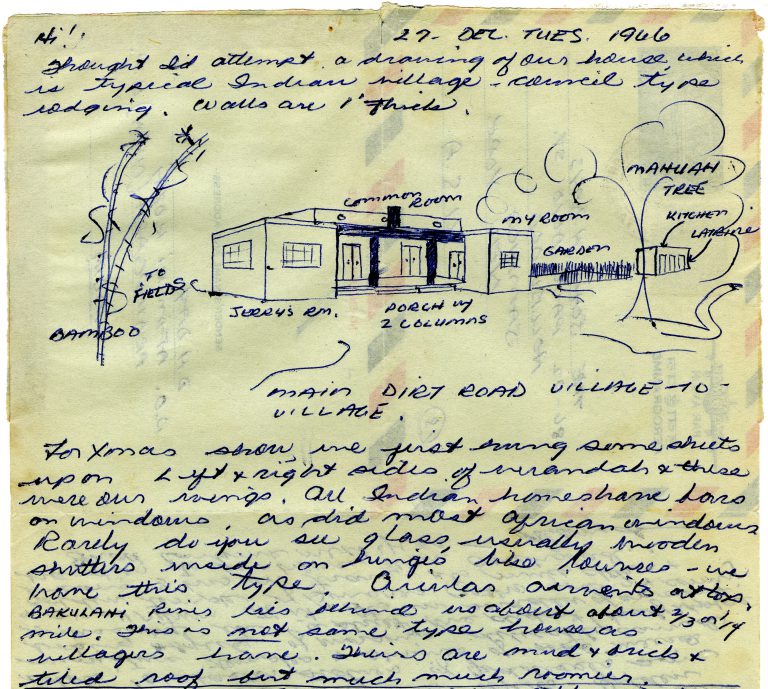 Hi!! 27- DEC. TUES. 1966
Thought I'd attempt a drawing of our house which
is typical Indian village - council type
lodging. Walls are 1' thick.
MAHUAH
TREE
COMMON
ROOM
MY ROOM
KITCHEN
LATRINE
GARDEN
TO
FIELDS
BAMBOO
JERRY'S RM.
PORCH W/
2 COLUMNS
MAIN DIRT ROAD VILLAGE-TO-
VILLAGE.
For Xmas show, we just hung some sheets
up on Left & right sides of verandah & these
were our wings. All Indian homes have bars
on windows, as did most African windows
Rarely do you see glass, usually wooden
shutters inside on hinges, like - we
have this type.
BAKULAHI River lies behind us about about 2/3 or 1/4
mile. This is not same type house as
villagers have. Theirs are mud & brick &
tiled roof but much much roomier.